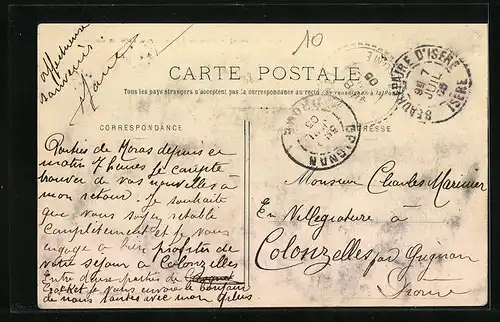 affectueux
souvenirs
10
CARTE POSTALE
Tous les pays étrangers n'acceptent pas la correspondance au recto
CORRESPONDANCE
ADRESSE
BEAUREPAIRE D'ISÈRE
7
JUIL
ISÈRE
GRIGNAN
DROME
Parties de Moras depuis ce
matin 7 heures je compte
trouver de vos nouvelles à
mon retour. Je souhaite
que vous soyez rétable
complètement et je vous
engage à bien profiter de
votre séjour à Colonzelles
Entre deux parties de
Crocket je vous envoie le bonjour
de nous toutes avec mon
Monsieur Charles
En Villégiature à
Colonzelles par Grignan
Drome